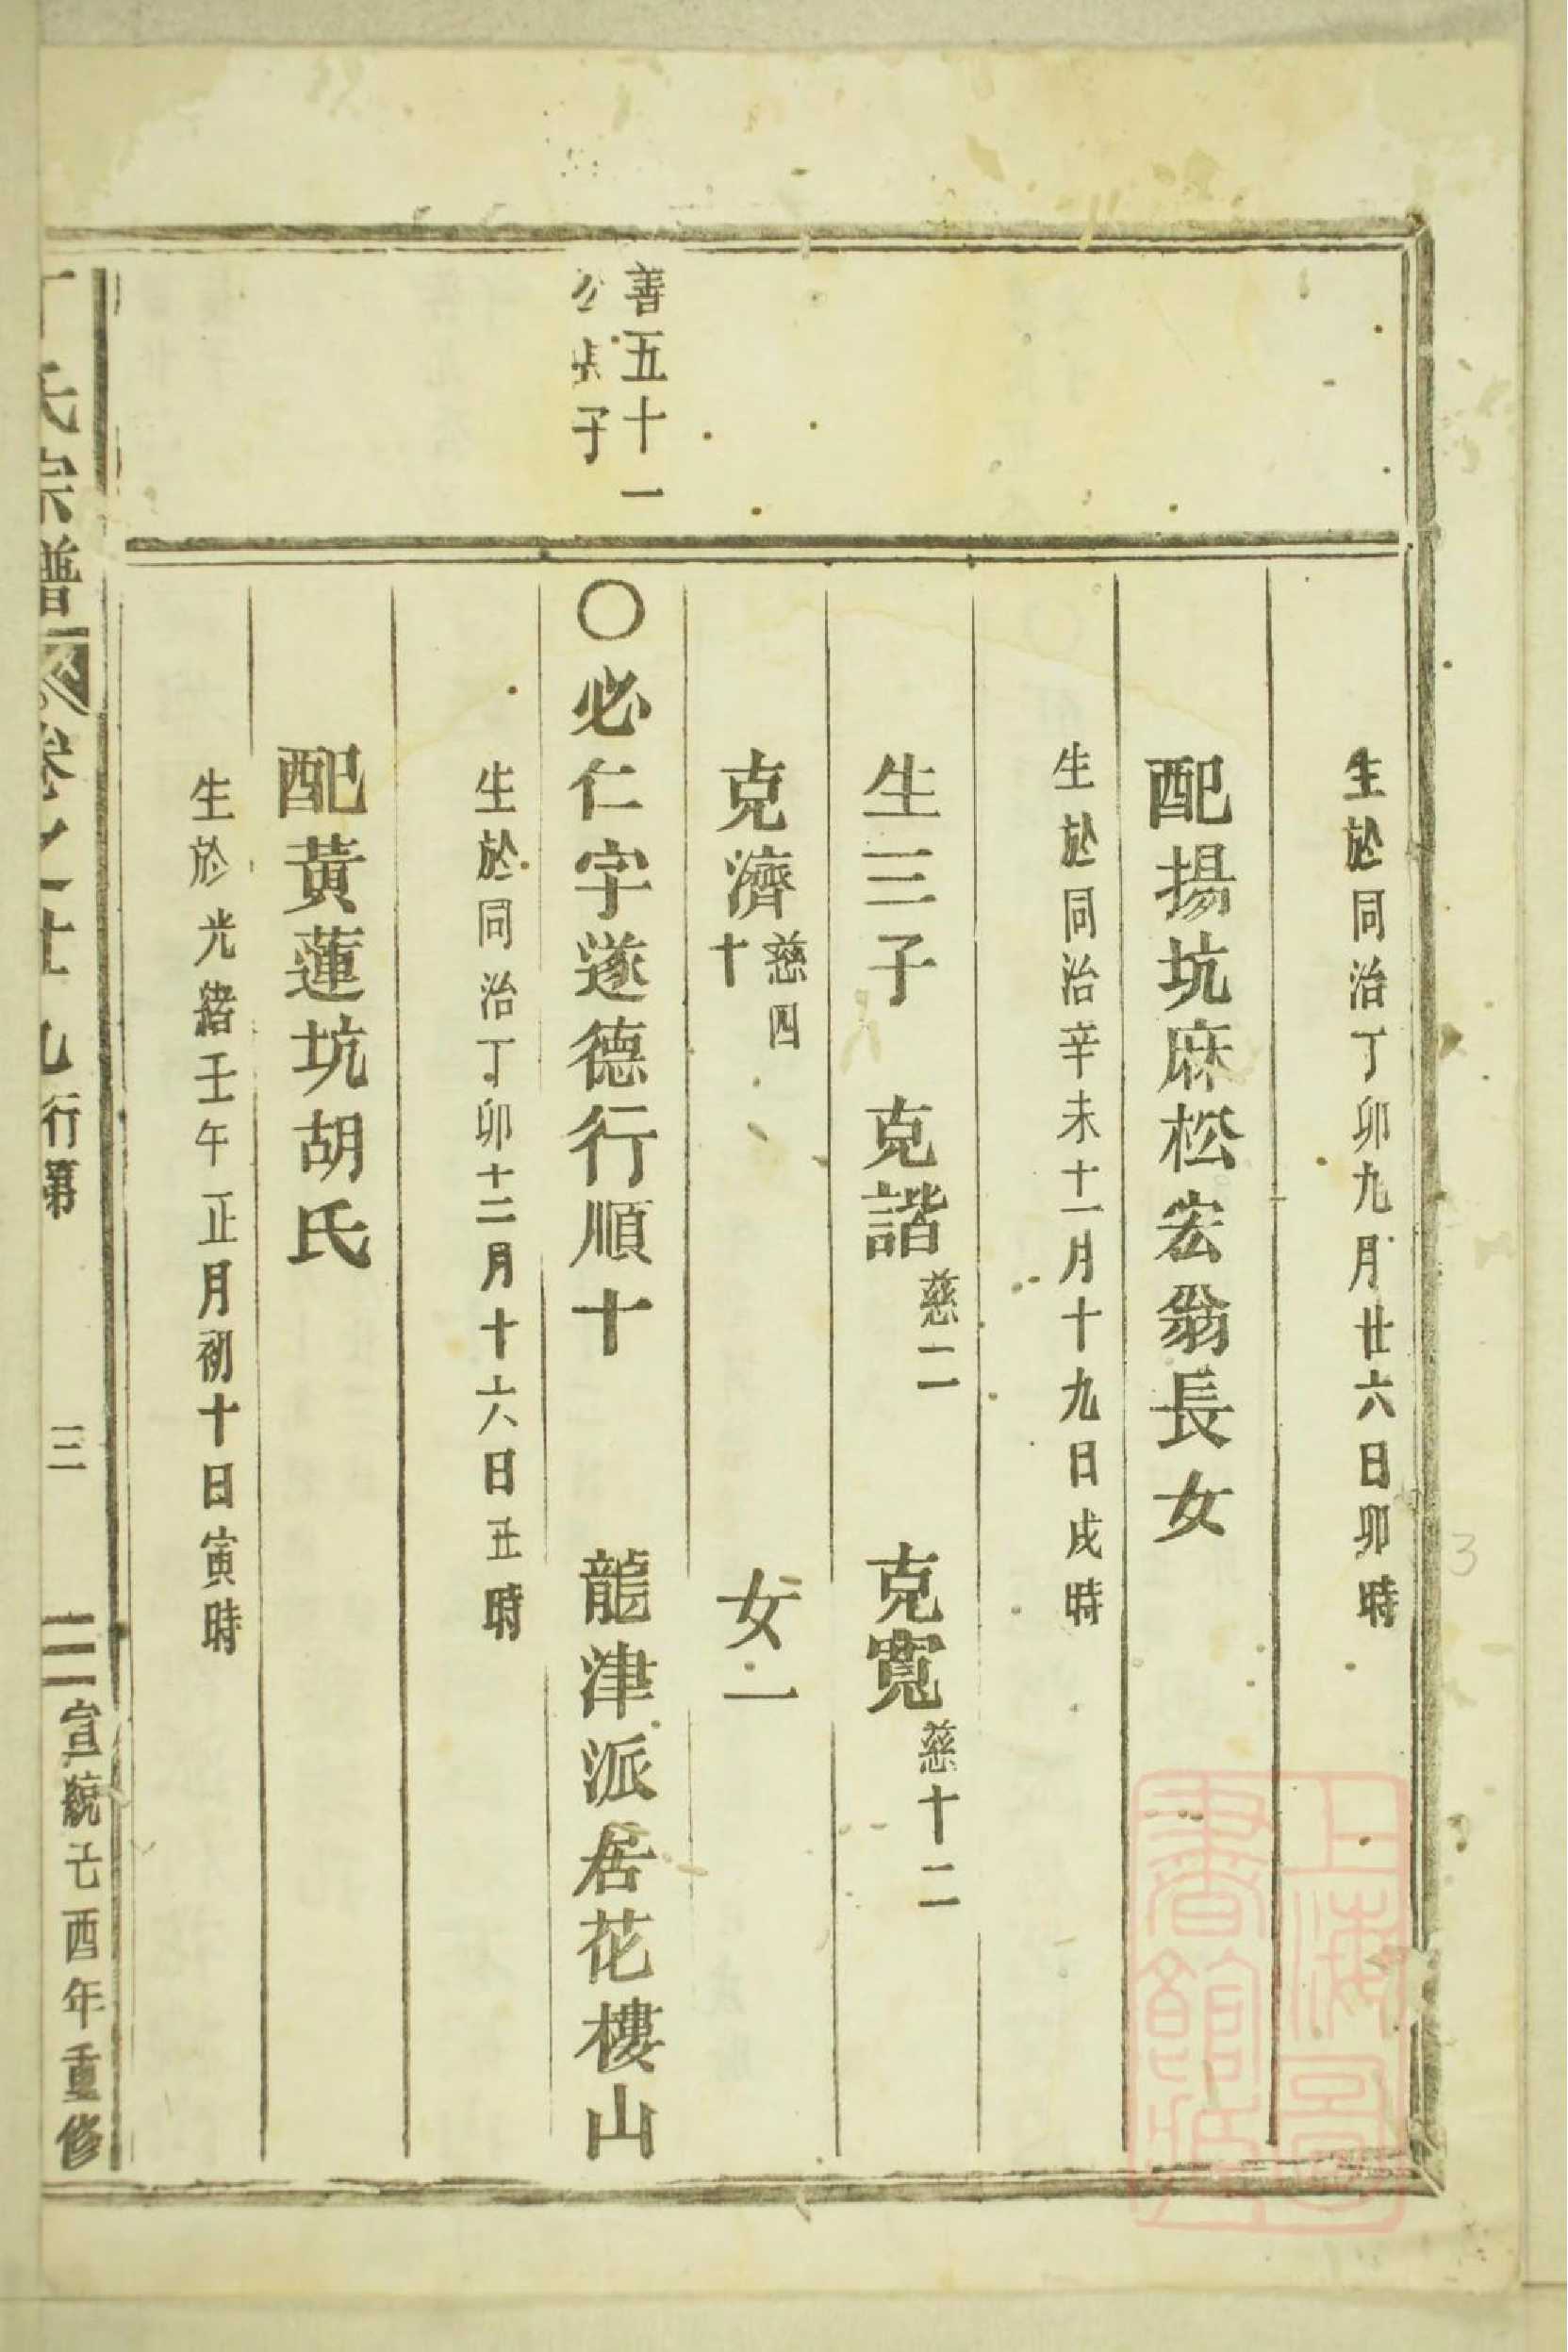 生於同治丁卯九月廿六日卯時
配揚坑麻松宏翁長女
生於同治辛未十一月十九日戌時
生三子 克諧慈二 克寬慈十二
克濟慈四十 女一
善五十一
公長子
〇必仁字遂德行順十 龍津派居花樓山
生於同治丁卯十二月十六日丑時
配黃蓮坑胡氏
生於光緒壬午正月初十日寅時
氏宗譜 卷之廿九行第 三 宣統乙酉年重修
上海圖
書館藏
3